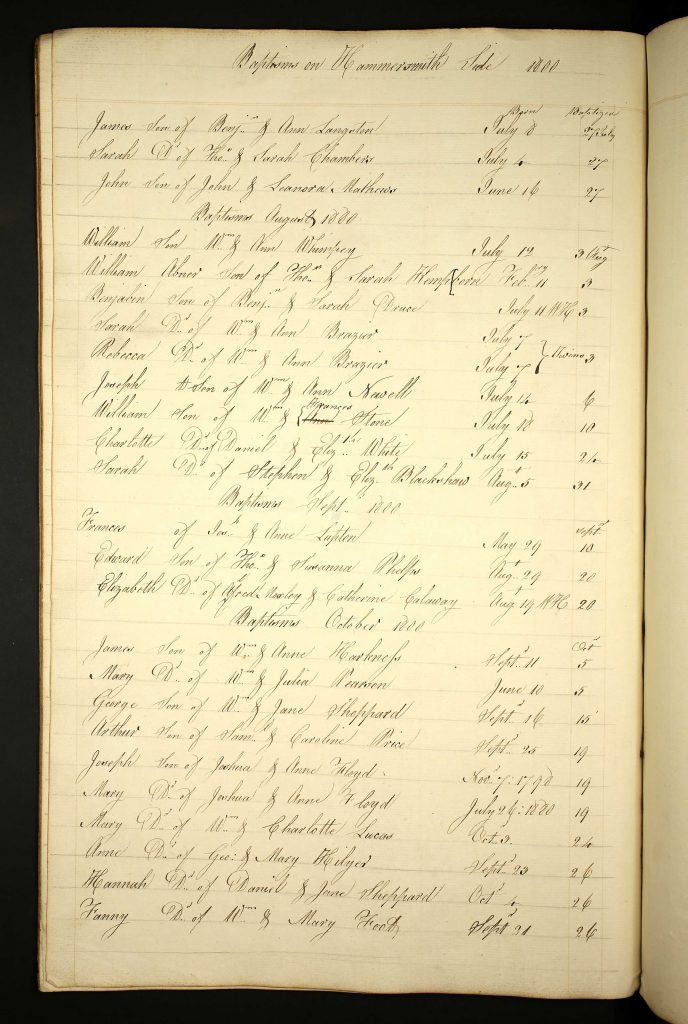 Baptisms on Hammersmith Side 1800
Born Baptized
James Son of Benj.n & Ann Langston July 8 27 July
Sarah D.r of Tho.s & Sarah Chambers July 4 27
John Son of John & Leanora Mathews June 16 27
Baptisms August 1800
William Son W.m & Ann Whimpey July 12 3 Aug.t
William Abner Son of Tho.s & Sarah Hemp born Feb.ry 11 3
Benjamin Son of Benj.n & Sarah Druce July 11 WH 3
Sarah D.r of W.m & Ann Brazier July 7
Rebecca D.r of W.m & Ann Brazier July 7 } Twins 3
Joseph Son of W.m & Ann Nawell July 14 6
William Son of W.m & Ann Frances Stone July 18 10
Charlotte D.r of Daniel & Eliz.th White July 15 24
Sarah D.r of Stephen & Eliz.th Blackshaw Aug.t 5 31
Baptisms Sept.r 1800
Frances of Jos.h & Anne Lupton May 29 Sept.r 10
Edward Son of Tho.s & Susanna Phelps Aug.t 29 20
Elizabeth D.r of & Catherine Calaway Aug.t 19 WH 20
Baptisms October 1800
James Son of W.m & Anne Harkness Sept.r 11 Oct.r 5
Mary D.r of W.m & Julia Pearson June 10 5
George Son of W.m & Jane Sheppard Sept.r 16 15
Arthur Son of Sam.l & Caroline Price Sept.r 25 19
Joseph Son of Joshua & Anne Floyd Nov.r 7: 1798 19
Mary D.r of Joshua & Anne Floyd July 26: 1800 19
Mary D.r of W.m & Charlotte Lucas Oct. 3 24
Anne D.r of Geo: & Mary Hilyer Sept.r 23 26
Hannah D.r of Daniel & Jane Sheppard Oct.r 4 26
Fanny D.r of W.m & Mary Foot Sept.r 21 26